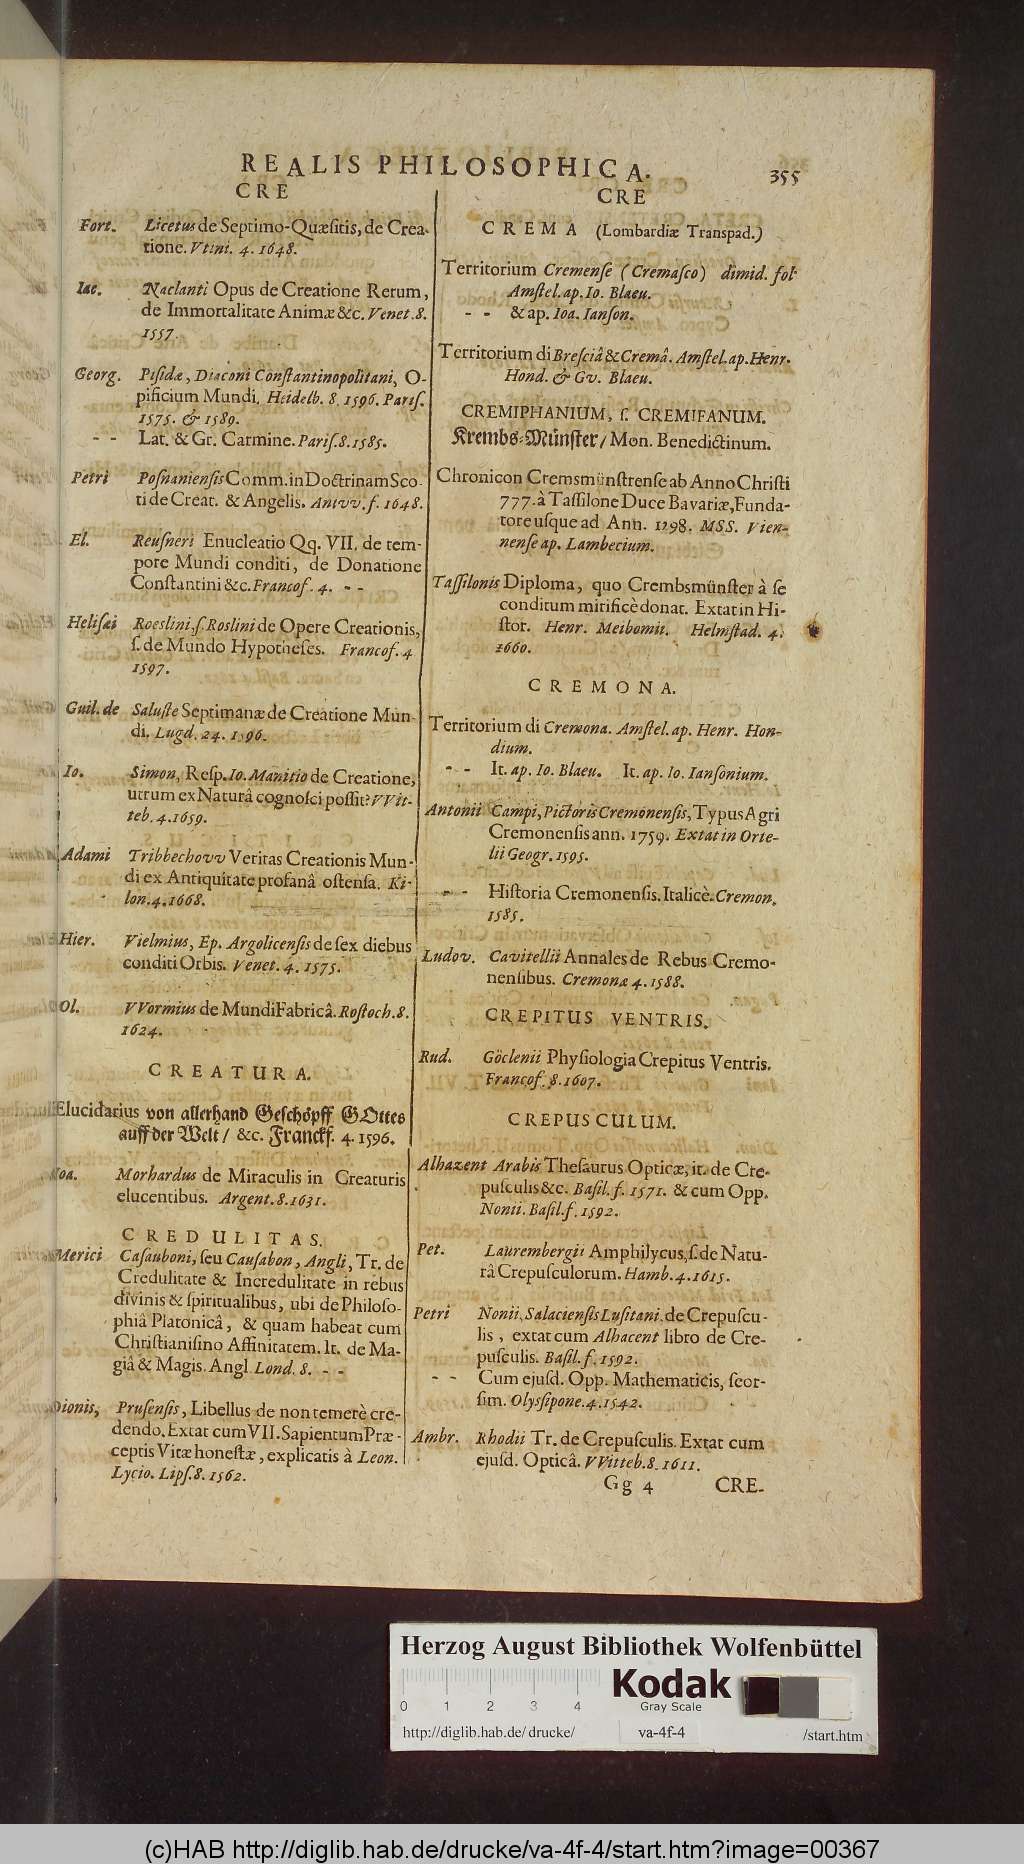 REALIS PHILOSOPHICA.
355
CRE
Fort. Licetus de Septimo-Quæsitis, de Crea-
tione. Vtini. 4. 1648.
Iac. Naclanti Opus de Creatione Rerum,
de Immortalitate Animæ &c. Venet. 8.
1557.
Georg. Pisidæ, Diaconi Constantinopolitani, O-
pificium Mundi. Heidelb. 8. 1596. Paris.
1575. & 1589.
- - Lat. & Gr. Carmine. Paris. 8. 1585.
Petri Posnaniensis Comm. in Doctrinam Sco-
ti de Creat. & Angelis. Antvv. f. 1648.
El. Reusneri Enucleatio Qq. VII. de tem-
pore Mundi conditi, de Donatione
Constantini &c. Francof. 4. - -
Helisæi Roeslini, s. Roslini de Opere Creationis,
s. de Mundo Hypotheses. Francof. 4
1597.
Guil. de Saluste Septimanæ de Creatione Mun-
di. Lugd. 24. 1596.
Io. Simon, Resp. Io. Manitio de Creatione,
utrum ex Naturâ cognosci possit? VVit-
teb. 4. 1659.
Adami Tribbechovv Veritas Creationis Mun-
di ex Antiquitate profanâ ostensa. Ki-
lon. 4. 1668.
Hier. Vielmius, Ep. Argolicensis de sex diebus
conditi Orbis. Venet. 4. 1575.
Ol. VVormius de Mundi Fabricâ. Rostoch. 8.
1624.
CREATURA.
Elucidarius von allerhand Geschöpff GOttes
auff der Welt / &c. Franckf. 4. 1596.
Ioa. Morhardus de Miraculis in Creaturis
elucentibus. Argent. 8. 1631.
CREDULITAS.
Merici Casauboni, seu Causabon, Angli, Tr. de
Credulitate & Incredulitate in rebus
divinis & spiritualibus, ubi de Philoso-
phiâ Platonicâ, & quam habeat cum
Christianisino Affinitatem. It. de Ma-
giâ & Magis. Angl. Lond. 8. - -
Dionis, Prusensis, Libellus de non temerè cre-
dendo. Extat cum VII. Sapientum Præ-
ceptis Vitæ honestæ, explicatis à Leon.
Lycio. Lips. 8. 1562.
CRE
CREMA (Lombardiæ Transpad.)
Territorium Cremense (Cremasco) dimid. fol
Amstel. ap. Io. Blaeu.
- - & ap. Ioa. Ianson.
Territorium di Bresciâ & Cremâ. Amstel. ap. Henr.
Hond. & Gv. Blaeu.
CREMIPHANIUM, s. CREMIFANUM.
Krembs-Münster / Mon. Benedictinum.
Chronicon Cremsmünstrense ab Anno Christi
777. à Tassilone Duce Bavariæ, Funda-
tore usque ad Ann. 1298. MSS. Vien-
nense ap. Lambecium.
Tassilonis Diploma, quo Crembsmünster à se
conditum mirificè donat. Extat in Hi-
stor. Henr. Meibomii. Helmstad. 4.
1660.
CREMONA.
Territorium di Cremona. Amstel. ap. Henr. Hon-
dium.
- - It. ap. Io. Blaeu. It. ap. Io. Iansonium.
Antonii Campi, Pictoris Cremonensis, Typus Agri
Cremonensis ann. 1759. Extat in Orte-
lii Geogr. 1595.
- - Historia Cremonensis. Italicè. Cremon.
1585.
Ludov. Cavitellii Annales de Rebus Cremo-
nensibus. Cremonæ 4. 1588.
CREPITUS VENTRIS.
Rud. Göclenii Physiologia Crepitus Ventris.
Francof. 8. 1607.
CREPUSCULUM.
Alhazent Arabis Thesaurus Opticæ, it. de Cre-
pusculis &c. Basil. f. 1571. & cum Opp.
Nonii. Basil. f. 1592.
Pet. Laurembergii Amphilycus, s. de Natu-
râ Crepusculorum. Hamb. 4. 1615.
Petri Nonii, Salaciensis Lusitani, de Crepuscu-
lis, extat cum Alhacent libro de Cre-
pusculis. Basil. f. 1592.
- - Cum ejusd. Opp. Mathematicis, seor-
sim. Olyssipone. 4. 1542.
Ambr. Rhodii Tr. de Crepusculis. Extat cum
ejusd. Opticâ. VVitteb. 8. 1611.
Gg 4 CRE-
Herzog August Bibliothek Wolfenbüttel
0 1 2 3 4
Kodak
Gray Scale
http://diglib.hab.de/drucke/ va-4f-4 /start.htm
(c)HAB http://diglib.hab.de/drucke/va-4f-4/start.htm?image=00367